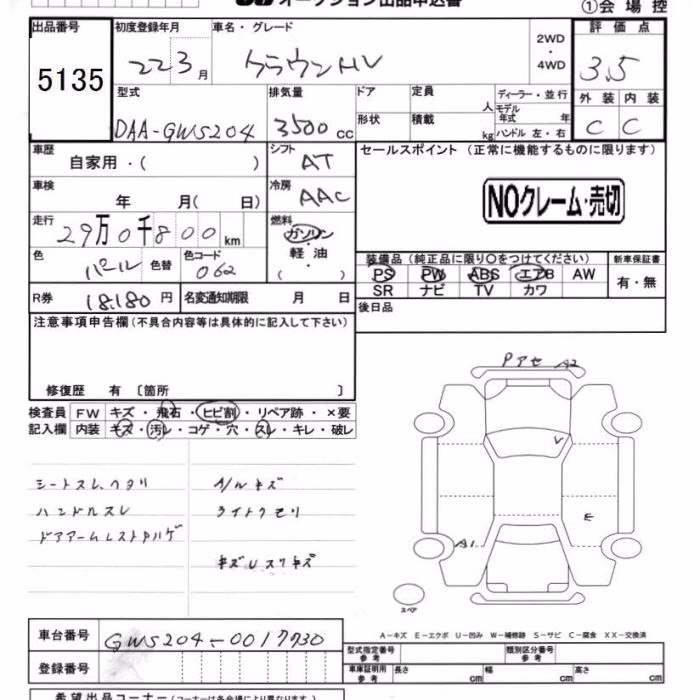 オークション出品申込書
①会場控
出品番号
5135
初度登録年月
22 3月
車名・グレード
クラウンHV
2WD
・
4WD
評価点
3.5
型式
DAA-GWS204
排気量
3500cc
ドア
定員 人
形状
積載 kg
ディーラー・並行
モデル年式 年
ハンドル 左・右
外装 内装
C C
車歴
自家用・( )
シフト
AT
セールスポイント (正常に機能するものに限ります)
車検
年 月( 日)
冷房
AAC
NOクレーム・売切
走行
29万0千800km
燃料
ガソリン
・
軽油
( ・ )
色
パール
色替
色コード
062
装備品(純正品に限り○をつけてください)
新車保証書
PS PW ABS エアB AW
有・無
SR ナビ TV カワ
R券 18,180円
名変通知期限 月 日
後日品
注意事項申告欄(不具合内容等は具体的に記入して下さい)
修復歴 有 〔箇所 〕
検査員 FW キズ・飛石・ヒビ割・リペア跡・×要
記入欄 内装 キズ・汚レ・コゲ・穴・スレ・キレ・破レ
シートスレ、ヘタリ
ハンドルスレ
ドアアームレストハゲ
A/Wキズ
ライトクモリ
キズUスリキズ
Pアセ A2
V
E
A1
スペア
A-キズ E-エクボ U-凹み W-補修跡 S-サビ C-腐食 XX-交換済
車台番号
GWS204-0017730
登録番号
型式指定番号 参考
類別区分番号 参考
車庫証明用 参考
長さ cm 幅 cm 高さ cm
希望出品コーナー(コーナーは各会場により異なります)